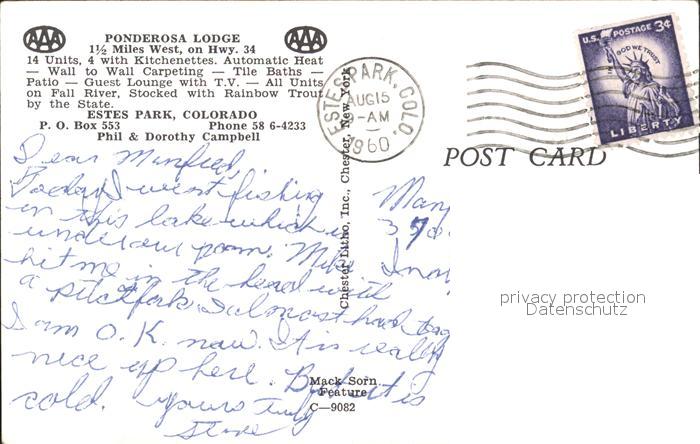 AAA PONDEROSA LODGE AAA
1½ Miles West, on Hwy. 34
14 Units, 4 with Kitchenettes. Automatic Heat
— Wall to Wall Carpeting — Tile Baths —
Patio — Guest Lounge with T.V. — All Units
on Fall River, Stocked with Rainbow Trout
by the State.
ESTES PARK, COLORADO
P. O. Box 553 Phone 58 6-4233
Phil & Dorothy Campbell
Dear Manfred,
Today I went fishing
in this lake which is
under our room. Mike
hit me in the head with
a pitchfork. I almost had to go
I am O. K. now. It is really
nice up here. But it is
cold. yours truly
Steve
Chester Litho, Inc., Chester, New York
Mack Sorn
Feature
C—9082
ESTES PARK, COLO.
AUG 15
9-AM
1960
U.S. POSTAGE 3¢
IN GOD WE TRUST
LIBERTY
POST CARD
Man
privacy protection
Datenschutz